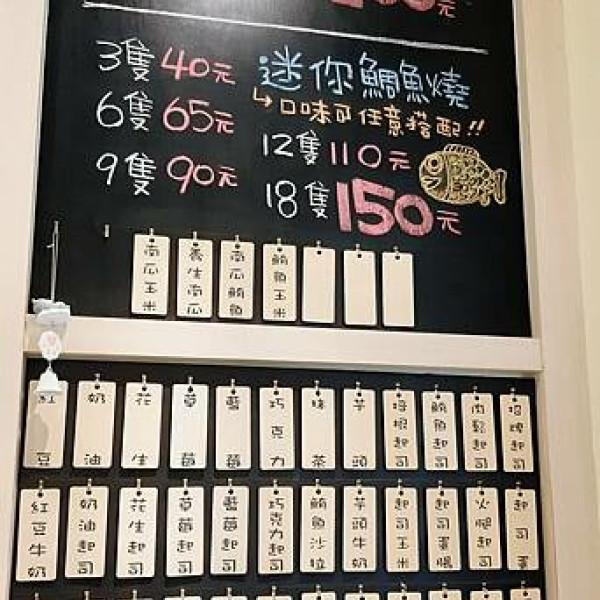 元
3隻40元 迷你鯛魚燒
↳口味可任意搭配!!
6隻65元 12隻110元
9隻90元 18隻150元
南瓜玉米 養生南瓜 南瓜鮪魚 鮪魚玉米
紅豆 奶油 花生 草莓 藍莓 巧克力 抹茶 芋頭 培根起司 鮪魚起司 肉鬆起司 招牌起司
紅豆牛奶 奶油起司 花生起司 草莓起司 藍莓起司 巧克力起司 鮪魚沙拉 芋頭牛奶 起司玉米 起司蛋腿 火腿起司 起司蛋